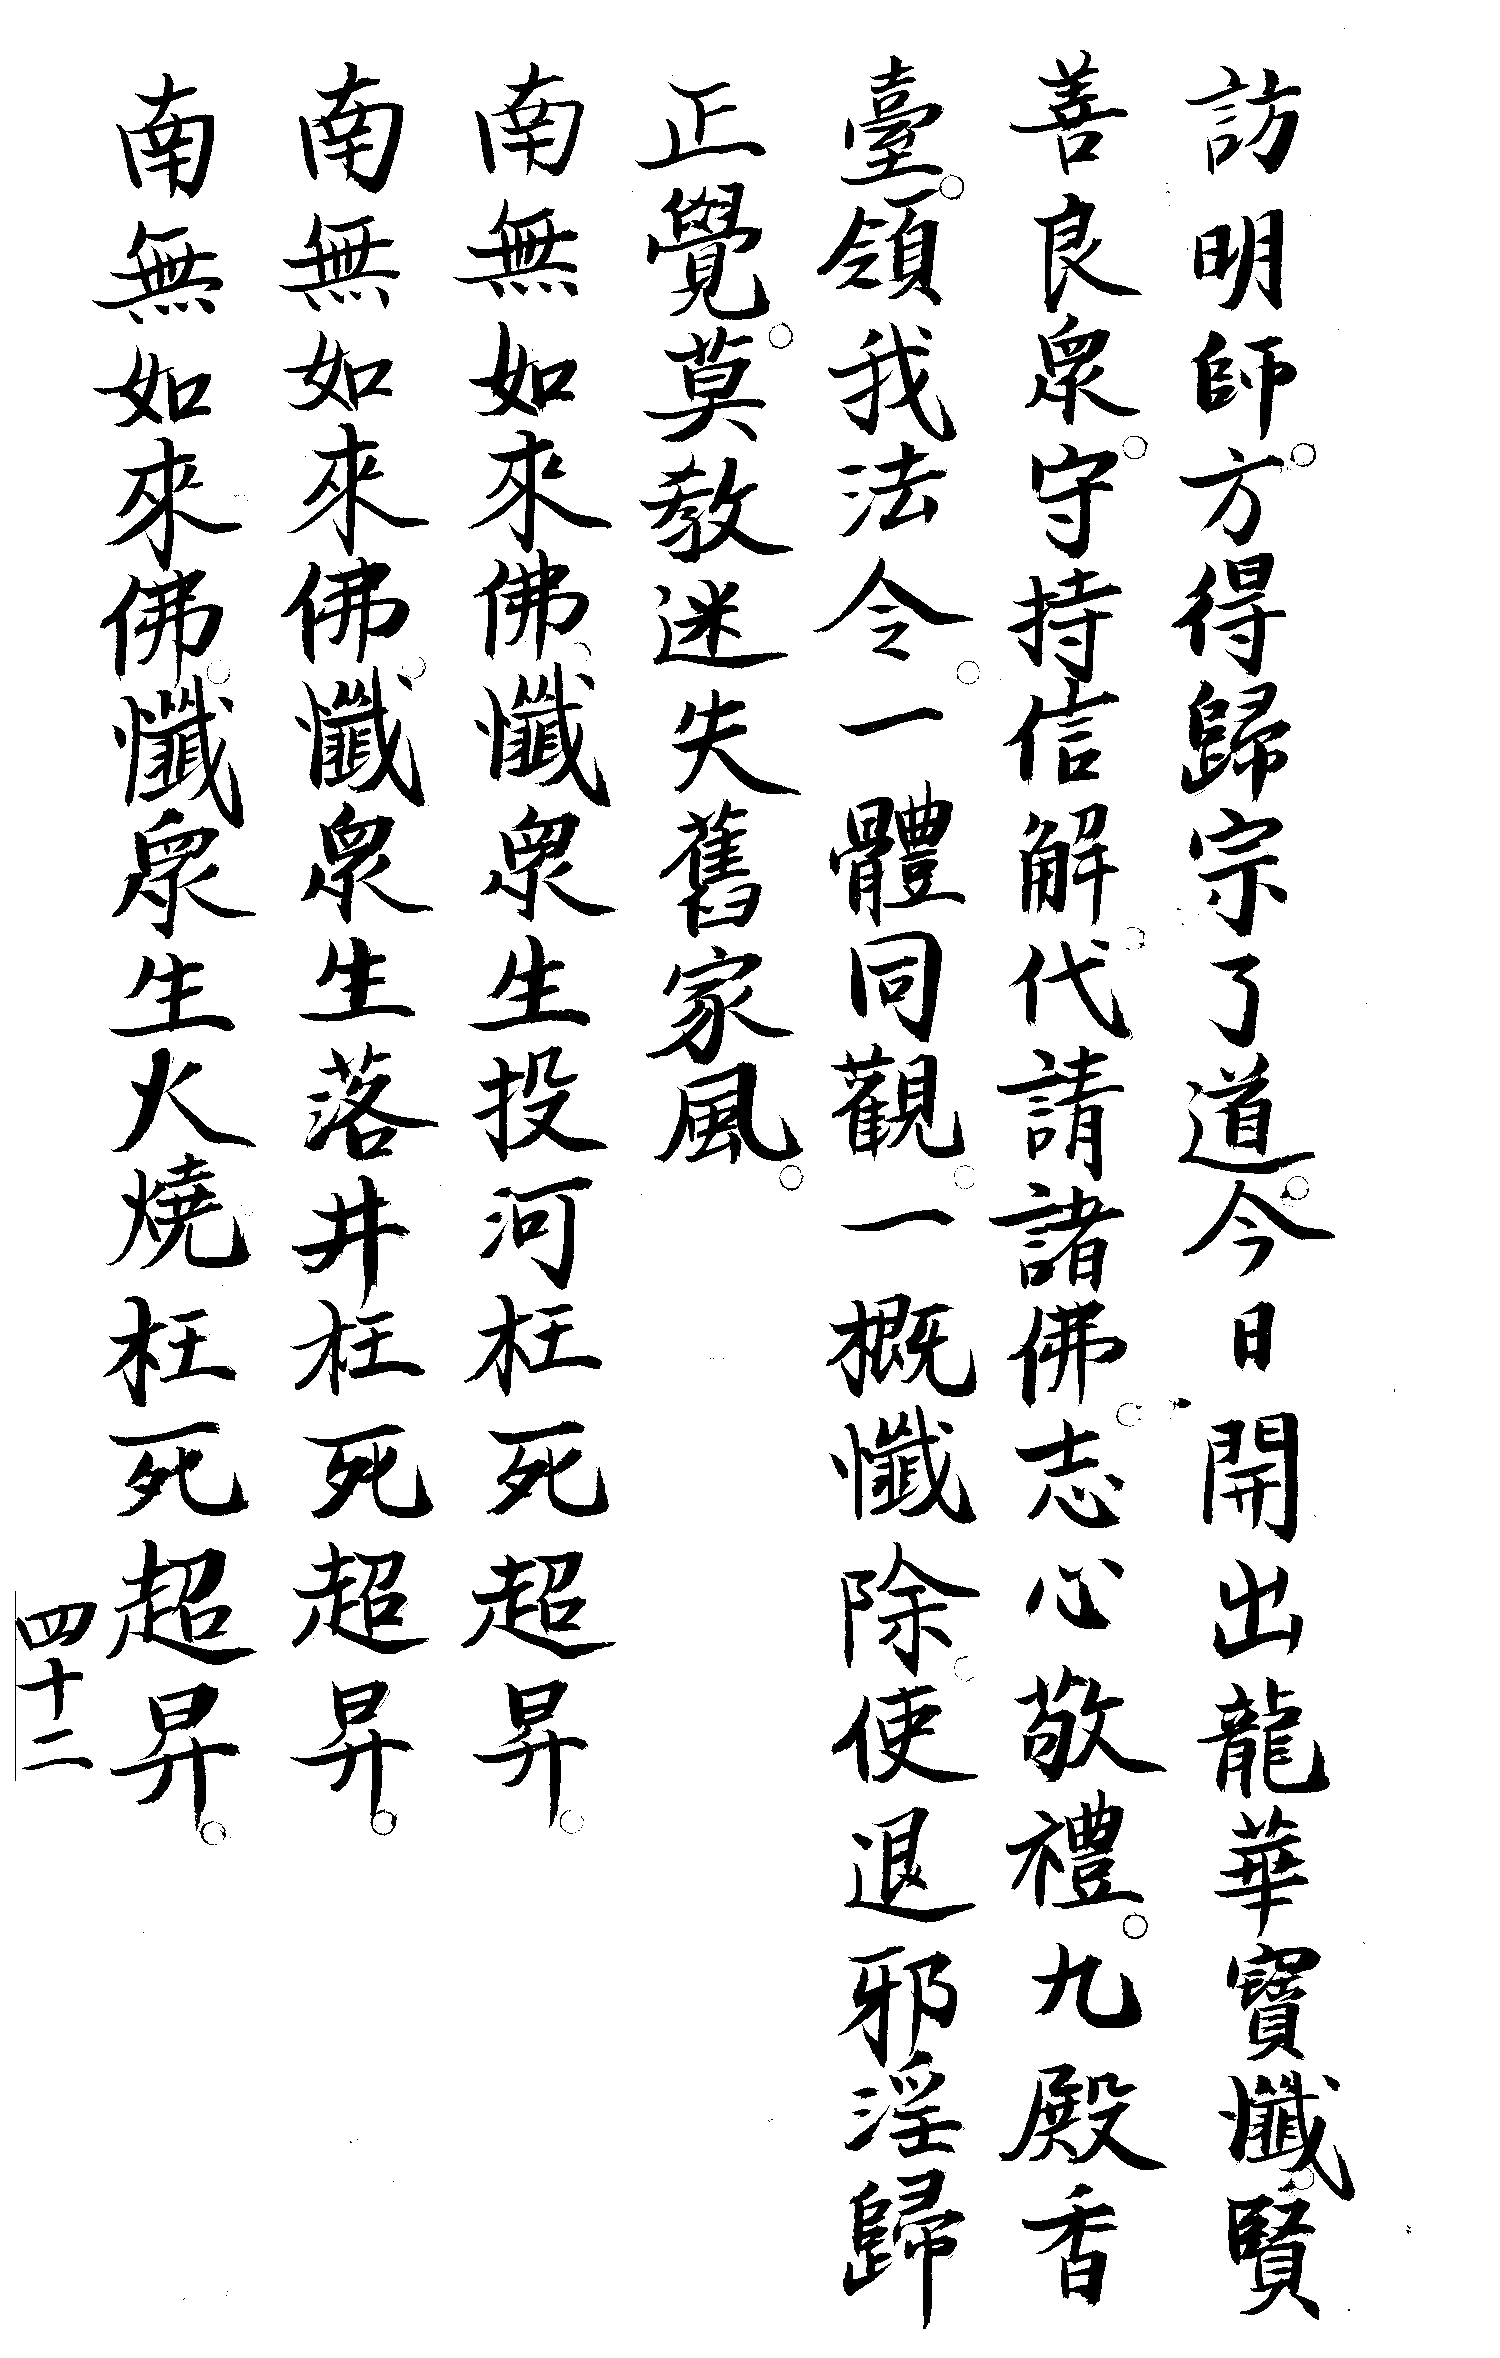 訪明師。方得歸宗了道。今日開出龍華寶懺。賢
善良眾。守持信解。代請諸佛。志心敬禮。九殿香
臺。領我法令。一體同觀。一概懺除。使退邪淫歸
正覺。莫教迷失舊家風。
南無如來佛。懺眾生投河枉死超昇。
南無如來佛。懺眾生落井枉死超昇。
南無如來佛。懺眾生火燒枉死超昇。
四十二